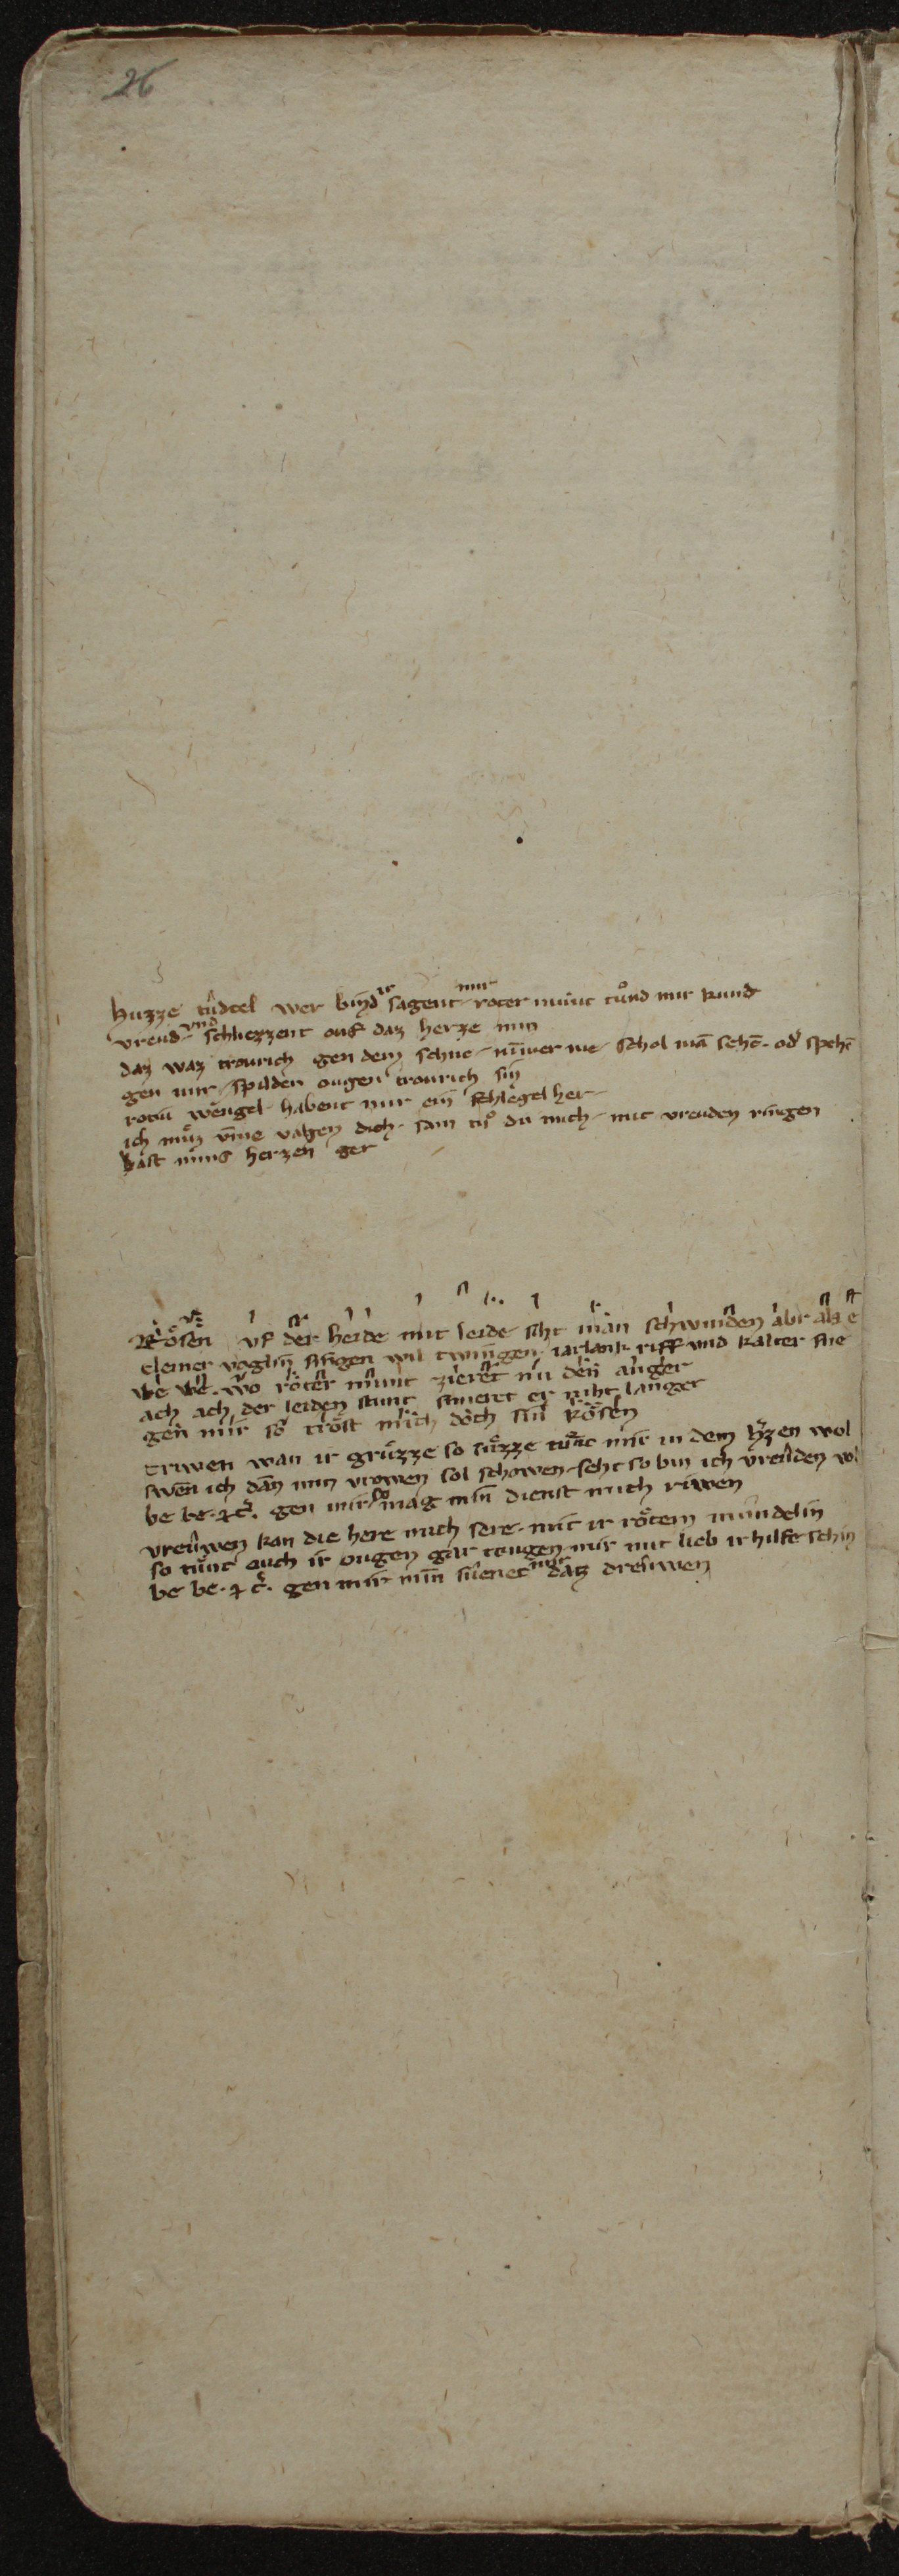 26
huzze tu̍dtel wer bu̍nd ir sagent mir roter munt tůnd mir kund
vreud vnd schliezzent ouf daz herze min
daz waz trourich gen dem schne nīmer me schol mā sehē. od' spehē
gen mir spilden ougen trourich sin
rotiu wengel habent mir ein her
ich můz vangen dich sam tůs du mich mit vreuden ringen
hast mins herzen ger
Rosen vf der heide mit leide siht man schwinden abr als e
cleiner voglin singen wil twingen iarlank riff vnd kalter sne
we we. wo roter munt zieret nu den anger
ach ach der leiden stunt smeret er niht langer
gen mir so trost mich doch sin rosen
triwen wan ir grůzze so sůzze tůnt mir in dem h'zen wol
swen ich dan min vrowen sol schowen seht so bin ich vreuden vol
be be. gen mir so mag min dienst mich riwen
vreuwen kan die here mich sere mit ir rotem mundelin
so tůnt auch ir ougen gar tougen mir mit lieb ir hilfe schin
be be. gen mir min mir datz dreuwen